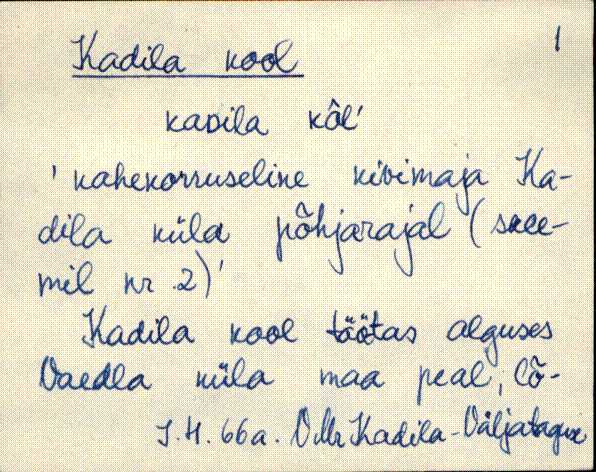 1
Kadila kool
kaDila kōl'
'kahekorruseline kivimaja Ka-
dila küla põhjarajal (skee-
mil nr. 2)'
Kadila kool töötas alguses
Vaedla küla maa peal, lõ-
J.H. 66a. VMr Kadila-Väljataguse